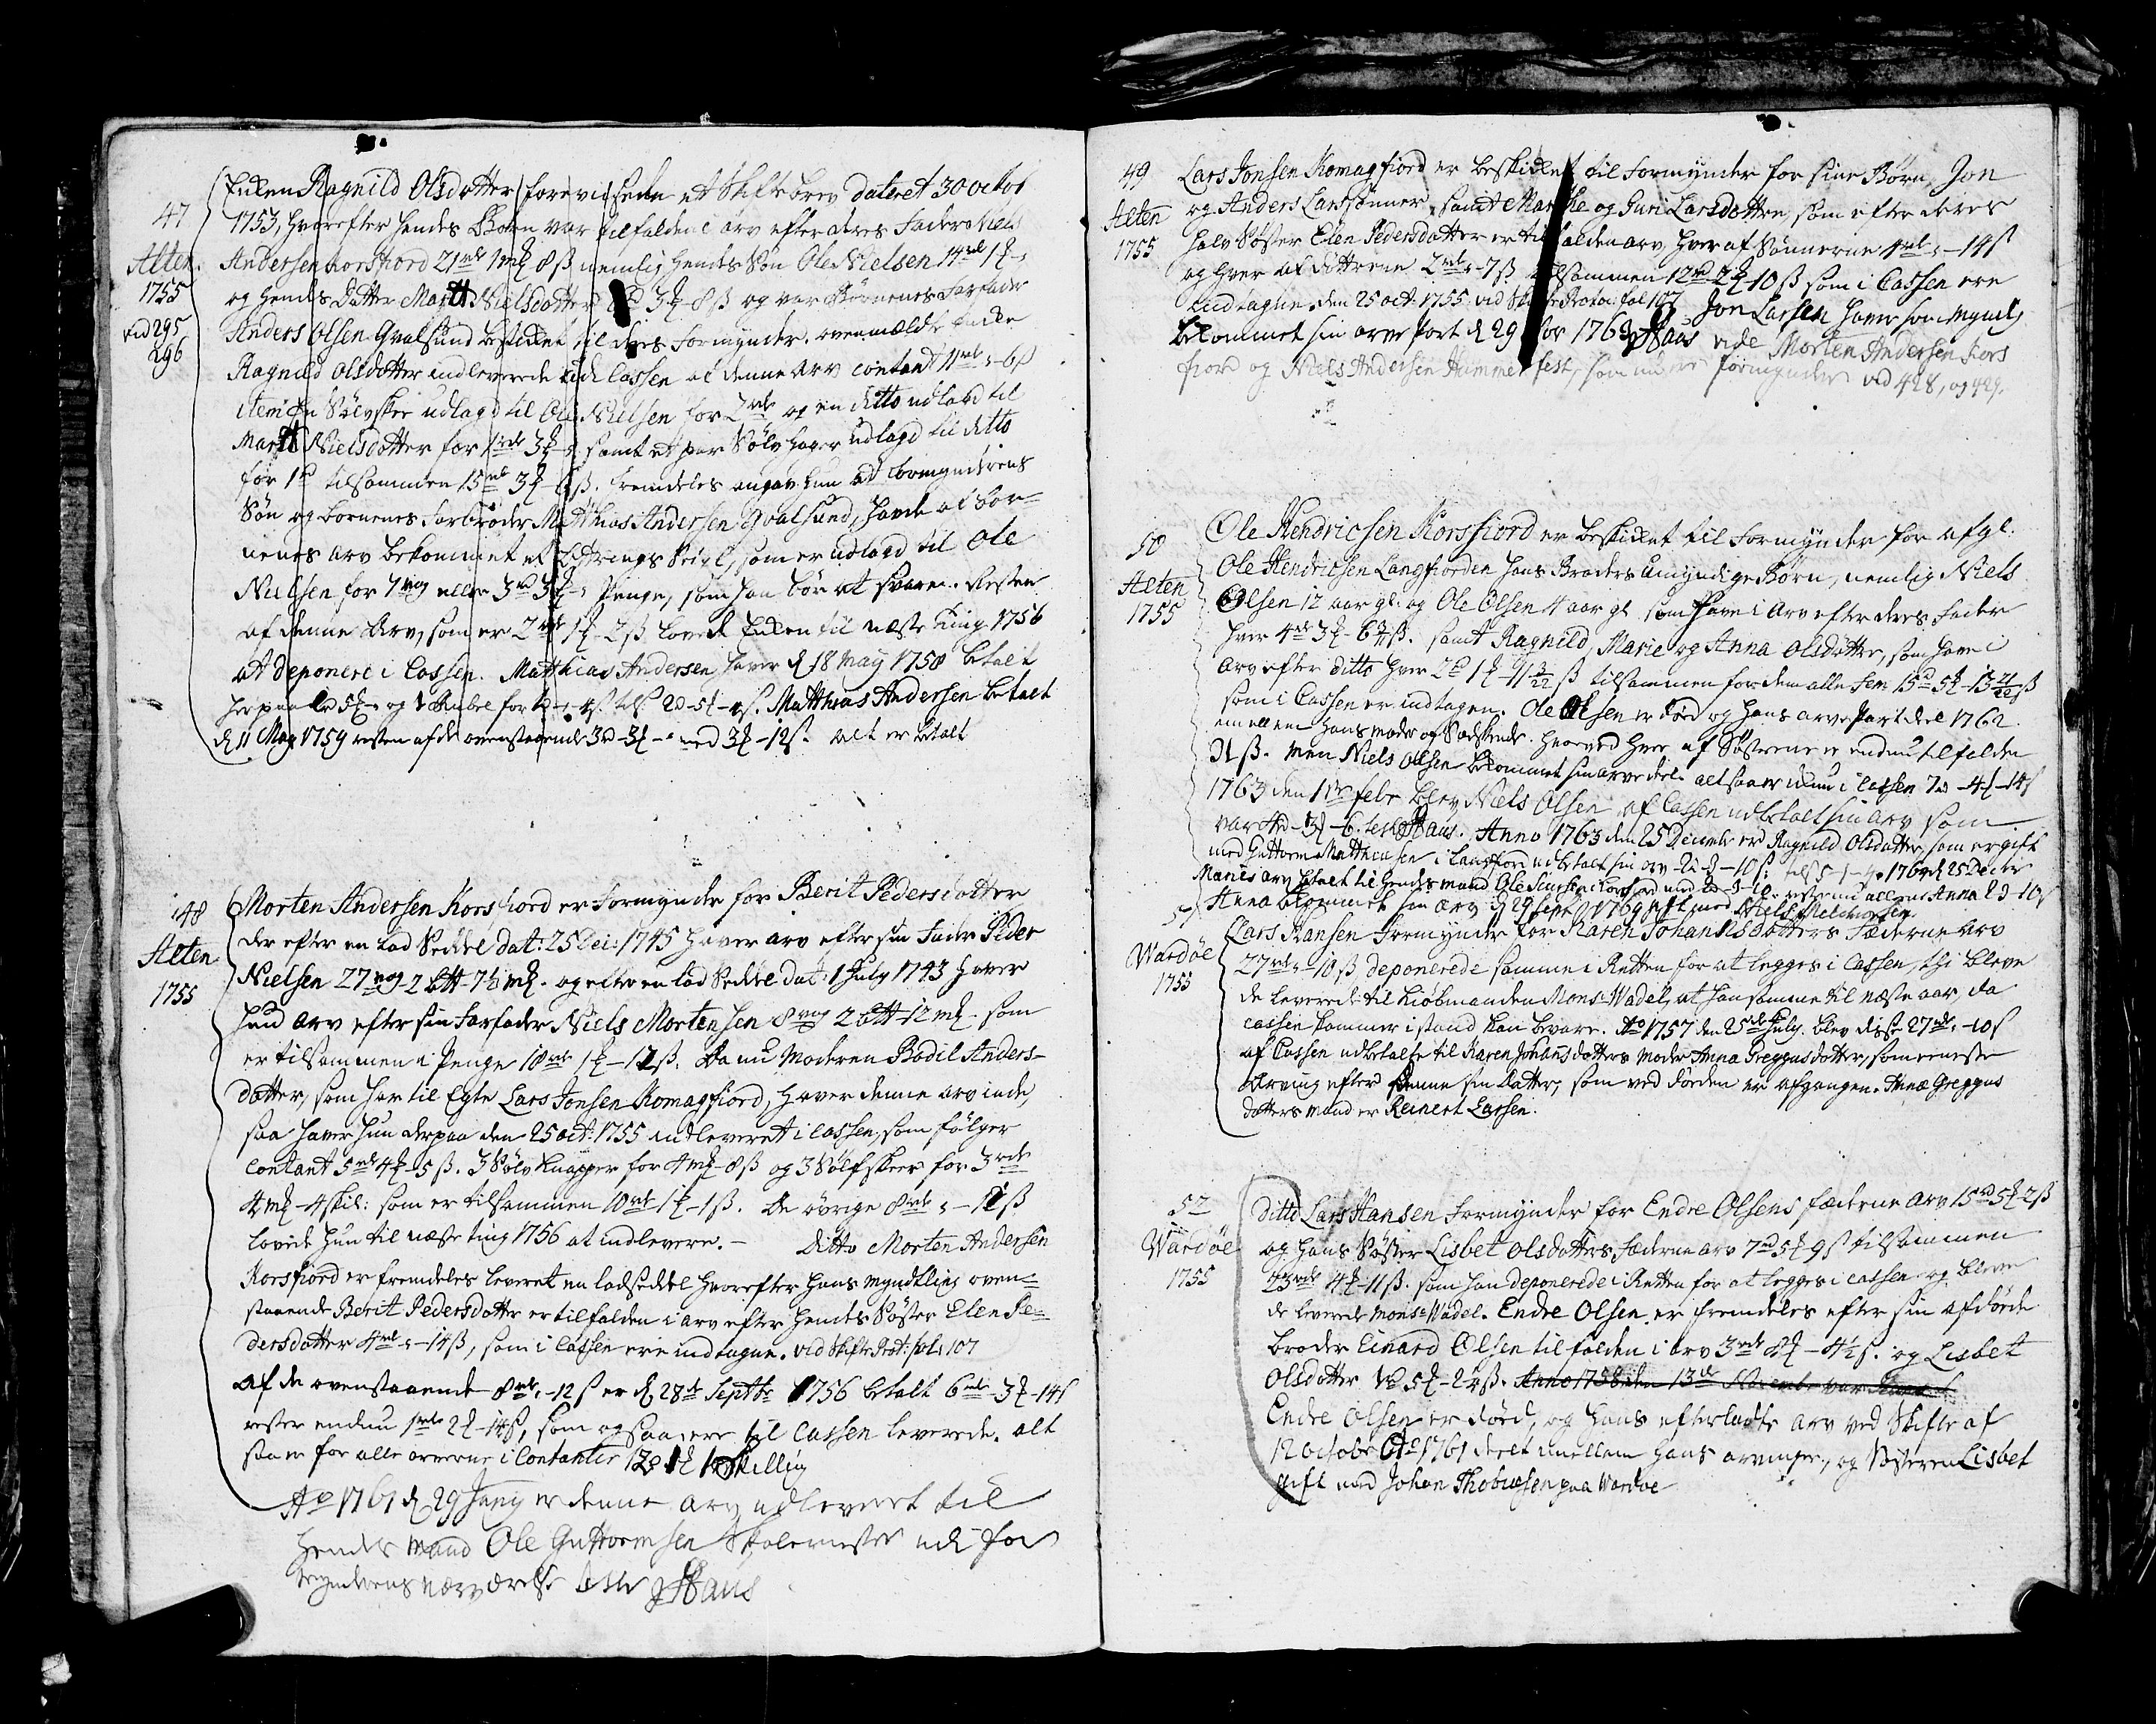 47
Alten
1755
vid 295
296
Enken Ragnild Olsdotter foreviisede et Skiftebrev dateret 30 octob
1753, hvorefter hendes Børn var tilfalden i arv efter deres Fader Niels
Andersen Korsfiord 21 rdr 1 mk 8 ß nemlig hendes Søn Ole Nielsen 14 rdr 1
og hendes Datter Marit Nielsdotter 3 - 8 ß og var Børnenes Farfader
Anders Olsen Qvalsund beskikket til deres Formynder. ovenmældte Enke
Ragnild Olsdotter indleverede udi Cassen af denne Arv contant 11 rdr - 6 ß
item En Sølvskee udlagd til Ole Nielsen for 2 rdr og en ditto udlagd til
Marit Nielsdotter for 1 rdr 3 samt et par Sølv hager udlagd til ditto
for 1 tilsammen 15 rdr 3 - 6 ß. fremdeles angav hun at formynderens
Søn og børnenes Farbroder Matthias Andersen Qvalsund, havde af bør-
nenes arv bekommet et Seigl, som er udlagd til Ole
Nielsen for 7 vog eller 3 rd 3 Penge, som han bør at svare. Resten
af denne Arv, som er 2 rdr 1 - 2 ß lovede Enken til næste ting 1756
at deponere i Cassen. Matthias Andersen haver d 18 May 1758 betalt
herpaa 5 og 1 Rubel for 2 - 5 - 4 ß. Matthias Andersen betalt
d 11 May 1759 resten af de ovenstaaende 3 rd - 3 - med 3 - 12 ß. alt er betalt
48
Alten
1755
Morten Andersen Korsfiord er Formynder for Berit Pedersdotter
der efter en lod Seddel dat: 25 Dec: 1745 haver arv efter sin Fader Peder
Nielsen 27 vog 2 btt - 7½ mk. og efter en lod Seddel dat: 1 July 1743 haver
hun arv efter sin Farfader Niels Mortensen 8 vog 2 btt - 12 mk. som
er tilsammen i Penge 18 rdr 1 - 1 ß. Da nu Moderen Bodil Anders-
dotter, som har til Egte Lars Jonsen Komagfiord, haver denne arv inde,
saa haver hun derpaa den 25 oct: 1755 indleveret i Cassen, som følger
contant 5 rdr 4 - 5 ß. 3 Sølv knapper for 4 mk - 8 ß og 3 Sølf skeer for 3 rdr
4 mk - 4 skil: som er tilsammen 10 rdr 1 - 1 ß. De øvrige 8 rdr - 12 ß
lovede hun til næste ting 1756 at indlevere. - Ditto Morten Andersen
Korsfiord er fremdeles leveret en lodseddel hvorefter hans myndtling oven-
staaende Berit Pedersdotter er tilfalden i arv efter hendes Søster Elen Pe-
dersdotter 4 rdr - 14 ß, som i Cassen ere indtagne. vid Skifte Prot: fol: 107
af de ovenstaaende 8 rdr - 12 ß er d 28de Septbr 1756 betalt 6 rdr 3 - 14 ß
rester endnu 1 rdr 2 - 14 ß, som ogsaa ere til Cassen leverede. alt
saa er for alle arverne i Contantie Skilling
Ao 1761 d 29 Juny er denne arv udleveert til
hendes mand Ole Guttormsen Skolemester udi for
mynderens nærværelse test Haus
49
Alten
1755
Lars Jonsen Komagfiord er beskikket til Formynder for sine Børn, Jon
og Anders Larssønner, samt Marthe og Guri Larsdøttre, som efter deres
halv Søster Elen Pedersdatter er tilfalden arv, hver af Sønnerne 4 rdr - 14 ß
og hver af døttrene 2 rdr - 7 ß tilsammen 12 rd 2 10 ß som i Cassen ere
indtagne. den 25 oct: 1755. vid Skifte Protoc: fol 107 Jon Larsen haver som myndig
bekommet sin arve Part d 29 1763 Haus vide Morten Andersen Kors
fiord og Niels Andersen Hammerfest, som nu er formynder vid 428, og 429.
50
Alten
1755
Ole Hendricsen Korsfiord er beskikket til Formynder for afgl:
Ole Hendricsen Langfiorden hans Broders umyndige Børn, nemlig Niels
Olsen 12 aar gl: og Ole Olsen 4 aar gl som have i Arv efter deres Fader
hver 4 rdr 3 - 6 ß. samt Ragnild, Marie og Anna Olsdøttre, som have i
Arv efter ditto hver 2 1 - 11 3/22 ß tilsammen for dem alle fem 15 5 - 13 21/22 ß
som i Cassen er indtagen. Ole Olsen er død og hans arve Part deel 1762
imellem hans moder og Sødskende. hvorved hver af Søstrene er endnu tilfalden
ß. men Niels Olsen bekommet sin arvedeel. altsaa er endnu i Cassen 7 - 4 - 14 ß
1763 den 1ste febr blev Niels Olsen af Cassen udbetalt sin arv som
var 4 rd - 3 - 6. test Haus. Anno 1763 den 25 Decembr er Ragnild Olsdotter, som er gift
med Guttorm Matthiasen i Langfiord udbetalt sin arv - 2 - 2 - 10 ß: 1764 d 25 Decbr
Maries arv betalt til hendes mand Ole i Korsfiord med rester nu alleene Anna 2 - 10 ß
Anna bekommet sin arv d 29 Sept 1769 gift med Niels Melchiorsen
51
Wardøe
1755
Lars Hansen Formynder for Karen Johannsdotters Fæderne Arv
27 rdr - 10 ß deponerede samme i Retten for at legges i Cassen, thi bleve
de leverede til Kiøbmanden Monsr Wadel, at han samme til næste aar, da
Cassen kommer i stand kan bevare. Ao 1757 den 25de July blev disse 27 rdr - 10 ß
af Cassen udbetalte til Karen Johannsdotters moder Anna Greggusdotter, som eeneste
Arving efter denne sin datter, som ved døden er afgangen. Anne Greggus
dotters mand er Reinert Larsen.
52
Wardøe
1755
Ditto Lars Hansen Formynder for Endre Olsens fæderne Arv 15 rd 5 2 ß
og hans Søster Lisbet Olsdotters Fæderne arv 7 rd 5 9 ß tilsammen
23 rdr 4 - 11 ß. som han deponerede i Retten for at legges i Cassen og bleve
de leverede Monsr Wadel. Endre Olsen er fremdeles efter sin afdøde
broder Einard Olsen tilfalden i arv 3 rdr 4 - 4½ ß. og Lisbet
Olsdotter 1 rd 5 - 2¼ ß. Anno 1758 den 13de Novembr var
Endre Olsen er død, og hans efterladte arv ved Skifte af
12 octobr Ao 1761 deelt imellem hans arvinger, og Søsteren Lisbet
gift med Johan Thobiesen paa Wardøe